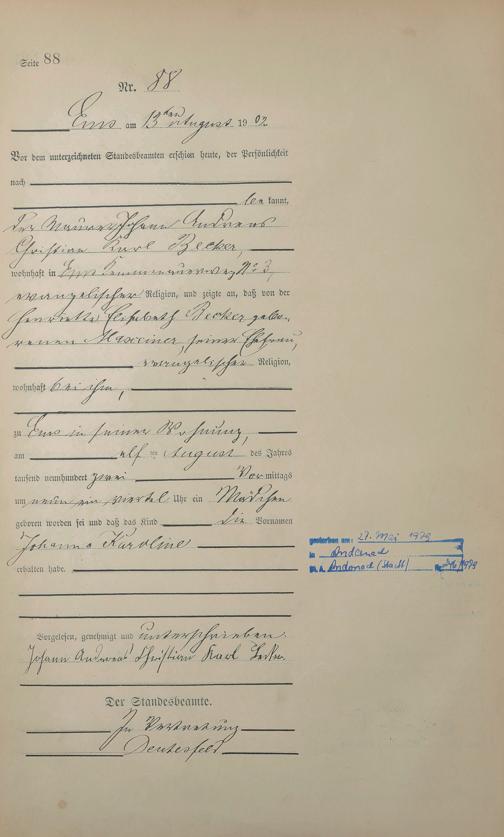 Seite 88
Nr. 88
Ems am 13ten August 1902
Vor dem unterzeichneten Standesbeamten erschien heute, der Persönlichkeit
nach
bekannt,
der Maurer Johann Andreas
Christian Karl Becker,
wohnhaft in Ems No 3,
evangelischer Religion, und zeigte an, daß von der
Henriette Elisabeth Becker gebo-
renen seiner Ehefrau,
evangelischer Religion,
wohnhaft bei ihm,
zu Ems in seiner Wohnung,
am elf ten August des Jahres
tausend neunhundert zwei Vormittags
um neun ein viertel Uhr ein Mädchen
geboren worden sei und daß das Kind die Vornamen
Johanna Karoline
erhalten habe.
gestorben am: 27. Mai 1979
in
St. A. (Stadt) Nr. /1979
Vorgelesen, genehmigt und unterschrieben.
Johann Andreas Christian Karl Becker.
Der Standesbeamte.
In Vertretung